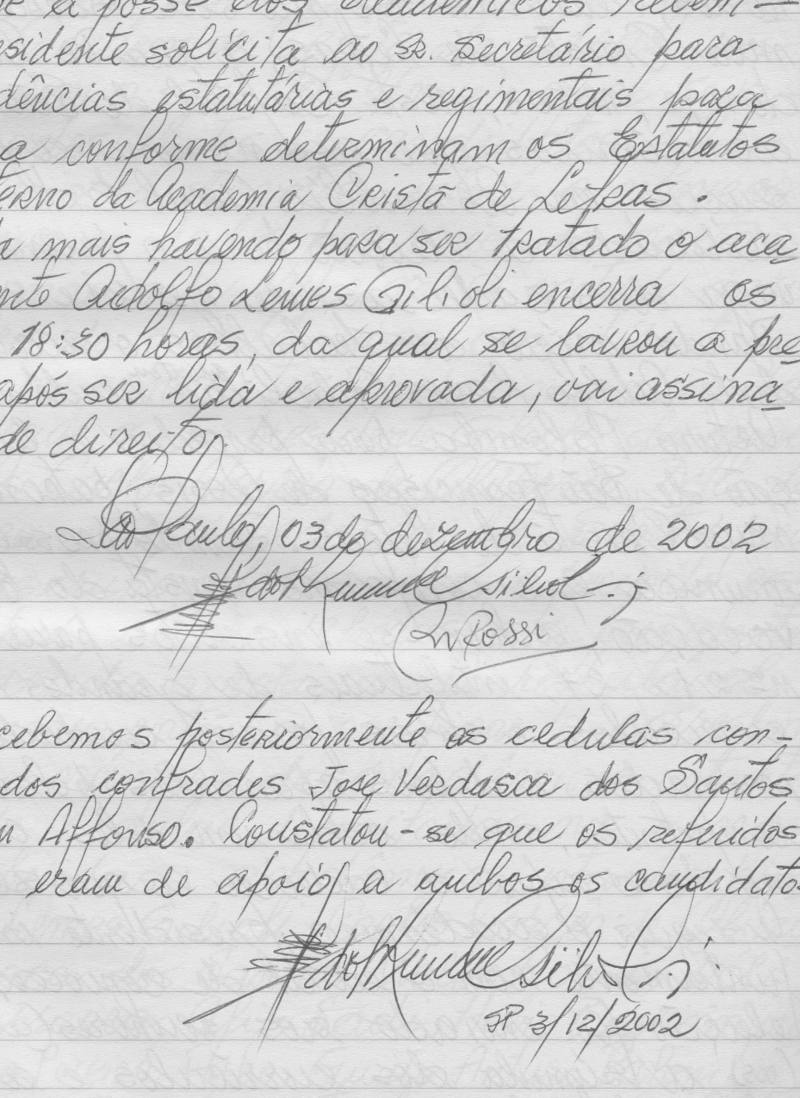 e a posse dos acadêmicos recém-
esidente solicita ao sr. secretário para
dências estatutárias e regimentais para
a conforme determinam os Estatutos
erno da Academia Cristã de Letras.
a mais havendo para ser tratado o aca
nte Adolfo Lemes Gilioli encerra os
18:30 horas, da qual se lavrou a pre
após ser lida e aprovada, vai assina
de direito
São Paulo, 03 de dezembro de 2002
Rossi
cebemos posteriormente as cedulas con-
dos confrades Jose Verdasca dos Santos
Affonso. Constatou-se que os referidos
eram de apoio a ambos os candidato
SP 3/12/2002